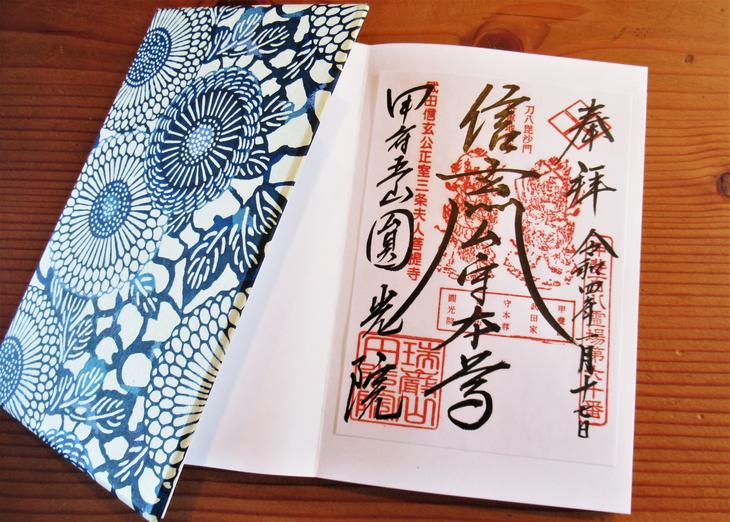 奉拝
令和四年一月十七日
刀八毘沙門
信玄公守本尊
甲斐
武田家
守本尊
圓光院
武田信玄公正室三条夫人菩提寺
甲府五山圓光院
瑞巖山
圓光院